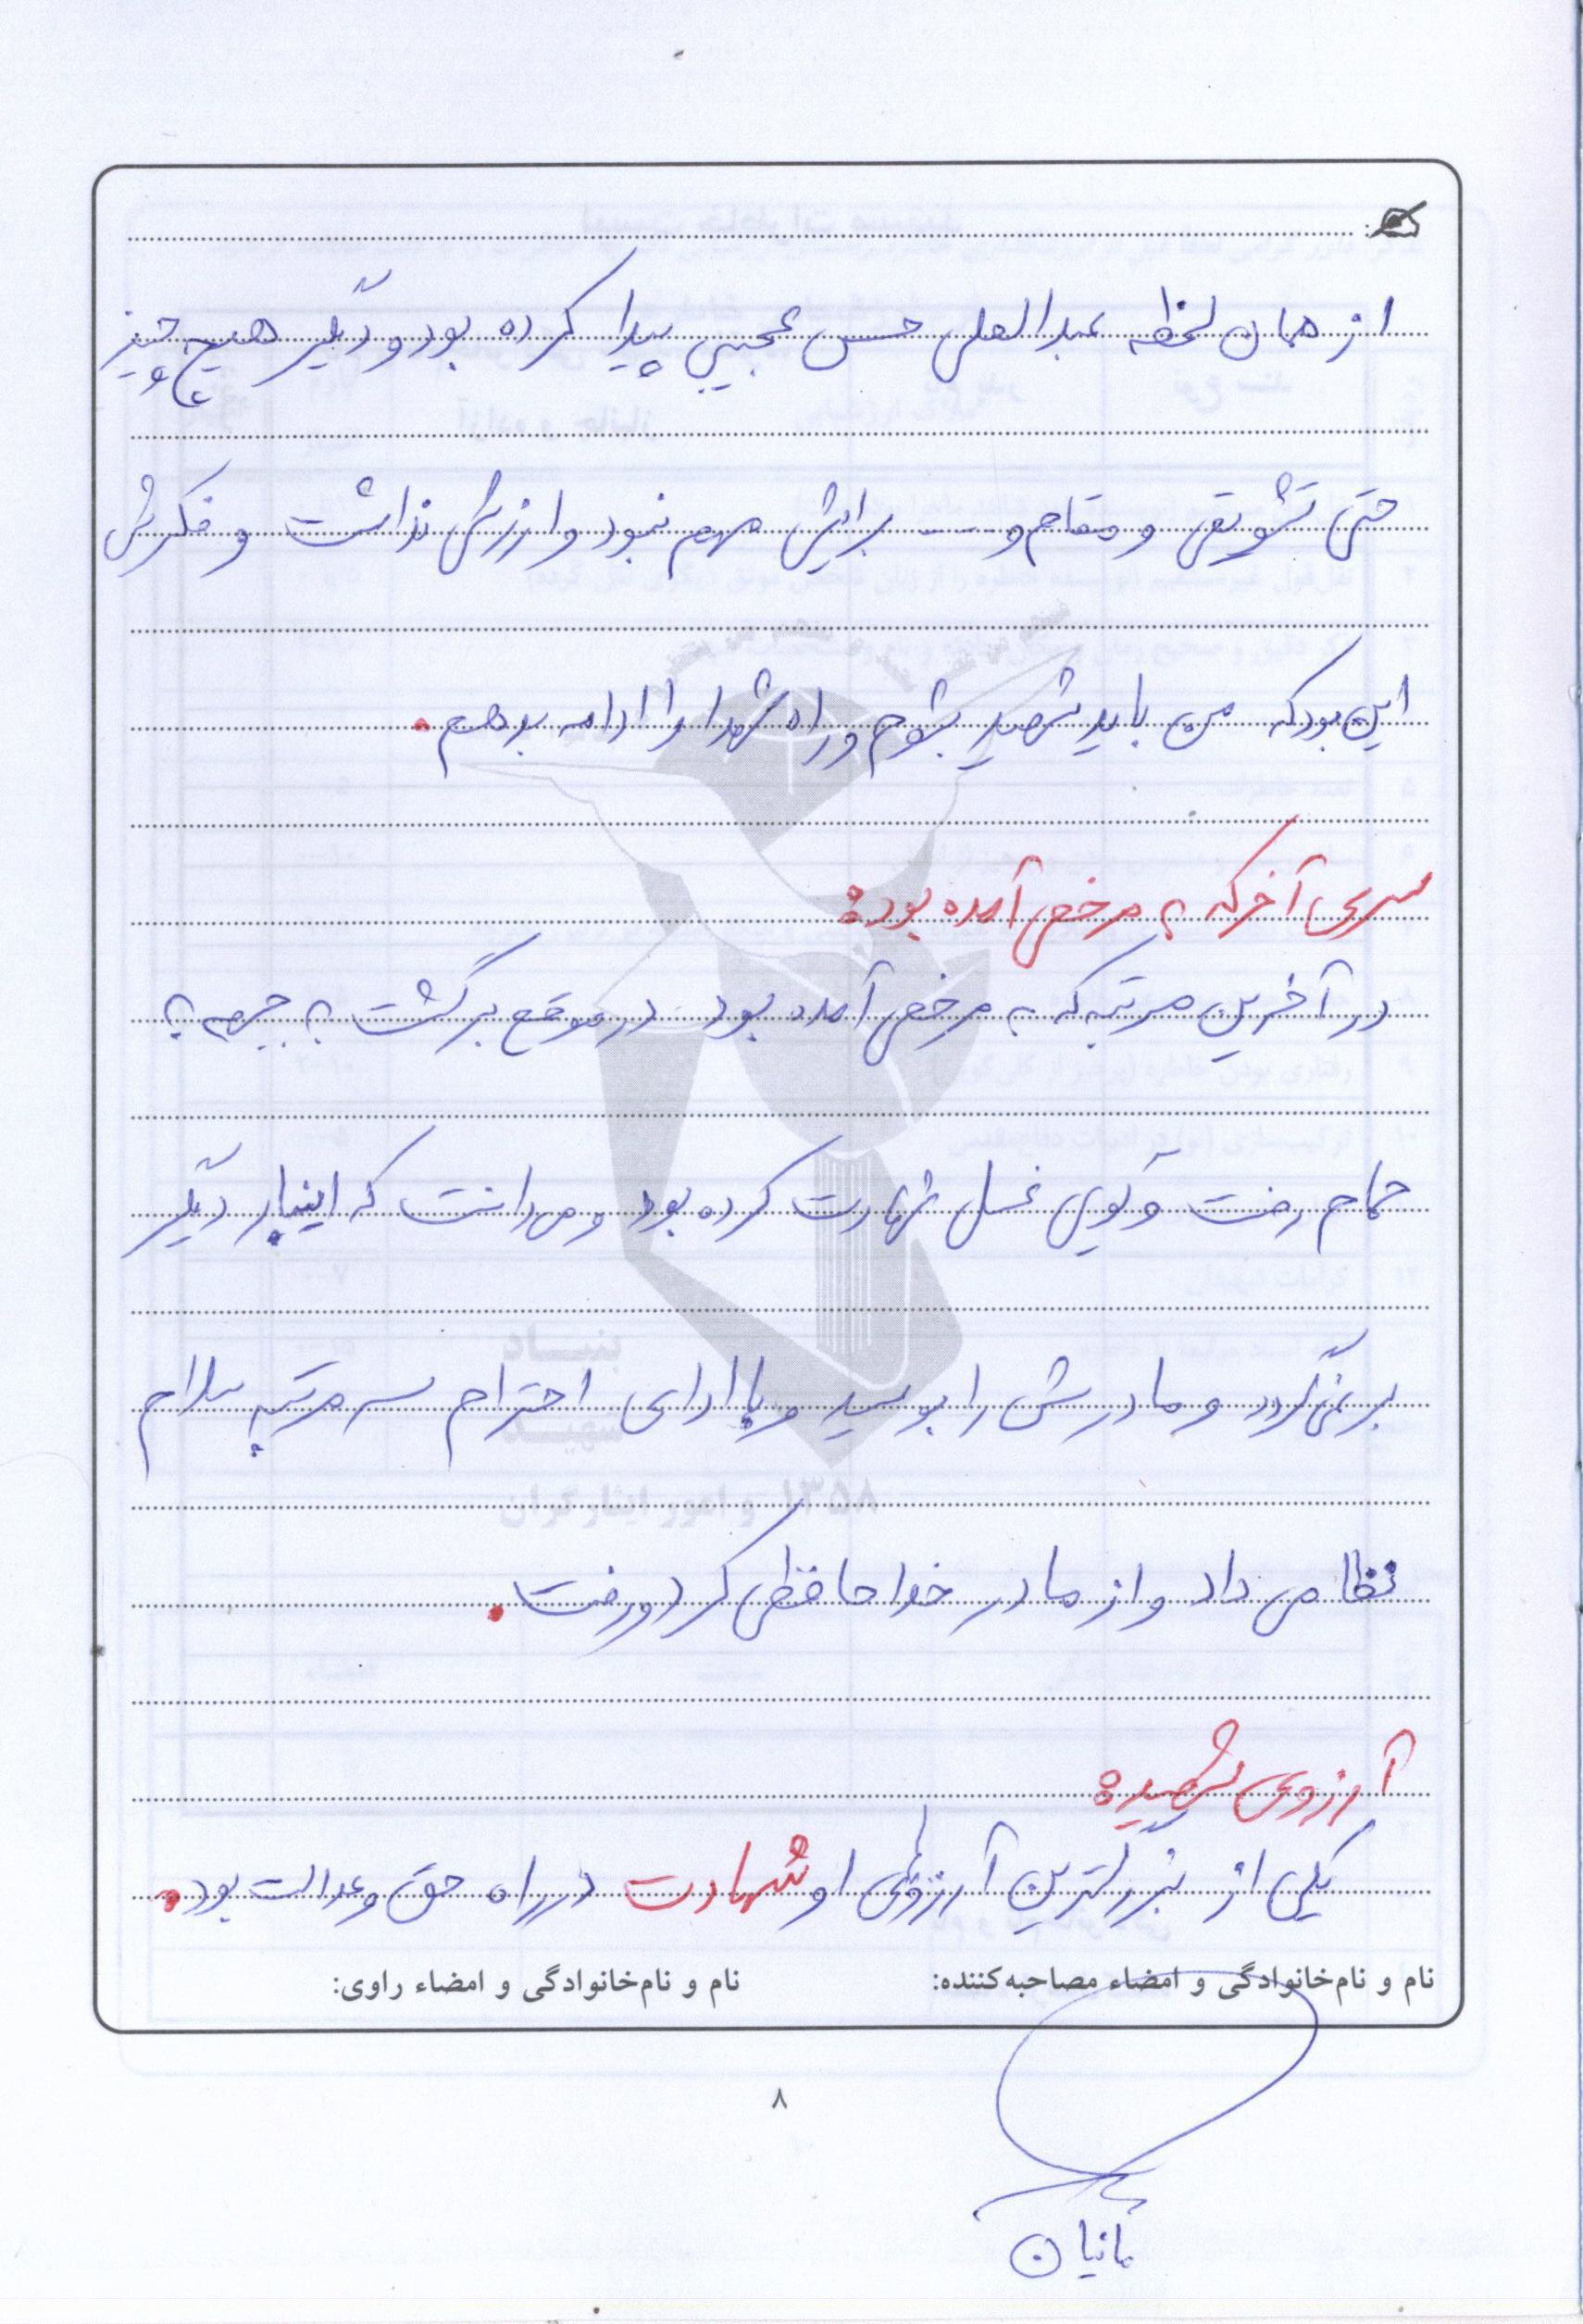 از همان لحظه عبدالعلی حس عجیبی پیدا کرده بود و دیگر هیچ چیز و
حتی تشویقی و مقام و --- برایش مهم نبود و ارزش نداشت و فکرش
این بود که من باید شهید بشوم و راه شهدا را ادامه بدهم.
سری آخر که به مرخصی آمده بود:
در آخرین مرتبه که به مرخصی آمده بود در موقع برگشت به جبهه به
حمام رفت و گویی غسل طهارت کرده بود و می دانست که اینبار دیگر
برنمی گردد و مادرش را بوسید و با ادای احترام سه مرتبه سلام
نظامی داد و از مادر خداحافظی کرد و رفت.
آرزوی شهید:
یکی از بزرگترین آرزوهای او شهادت در راه حق و عدالت بود.
نام و نام‌خانوادگی و امضاء مصاحبه‌کننده:
نام و نام‌خانوادگی و امضاء راوی:
۸
بنیاد
شهید
۱۳۵۸ و امور ایثارگران